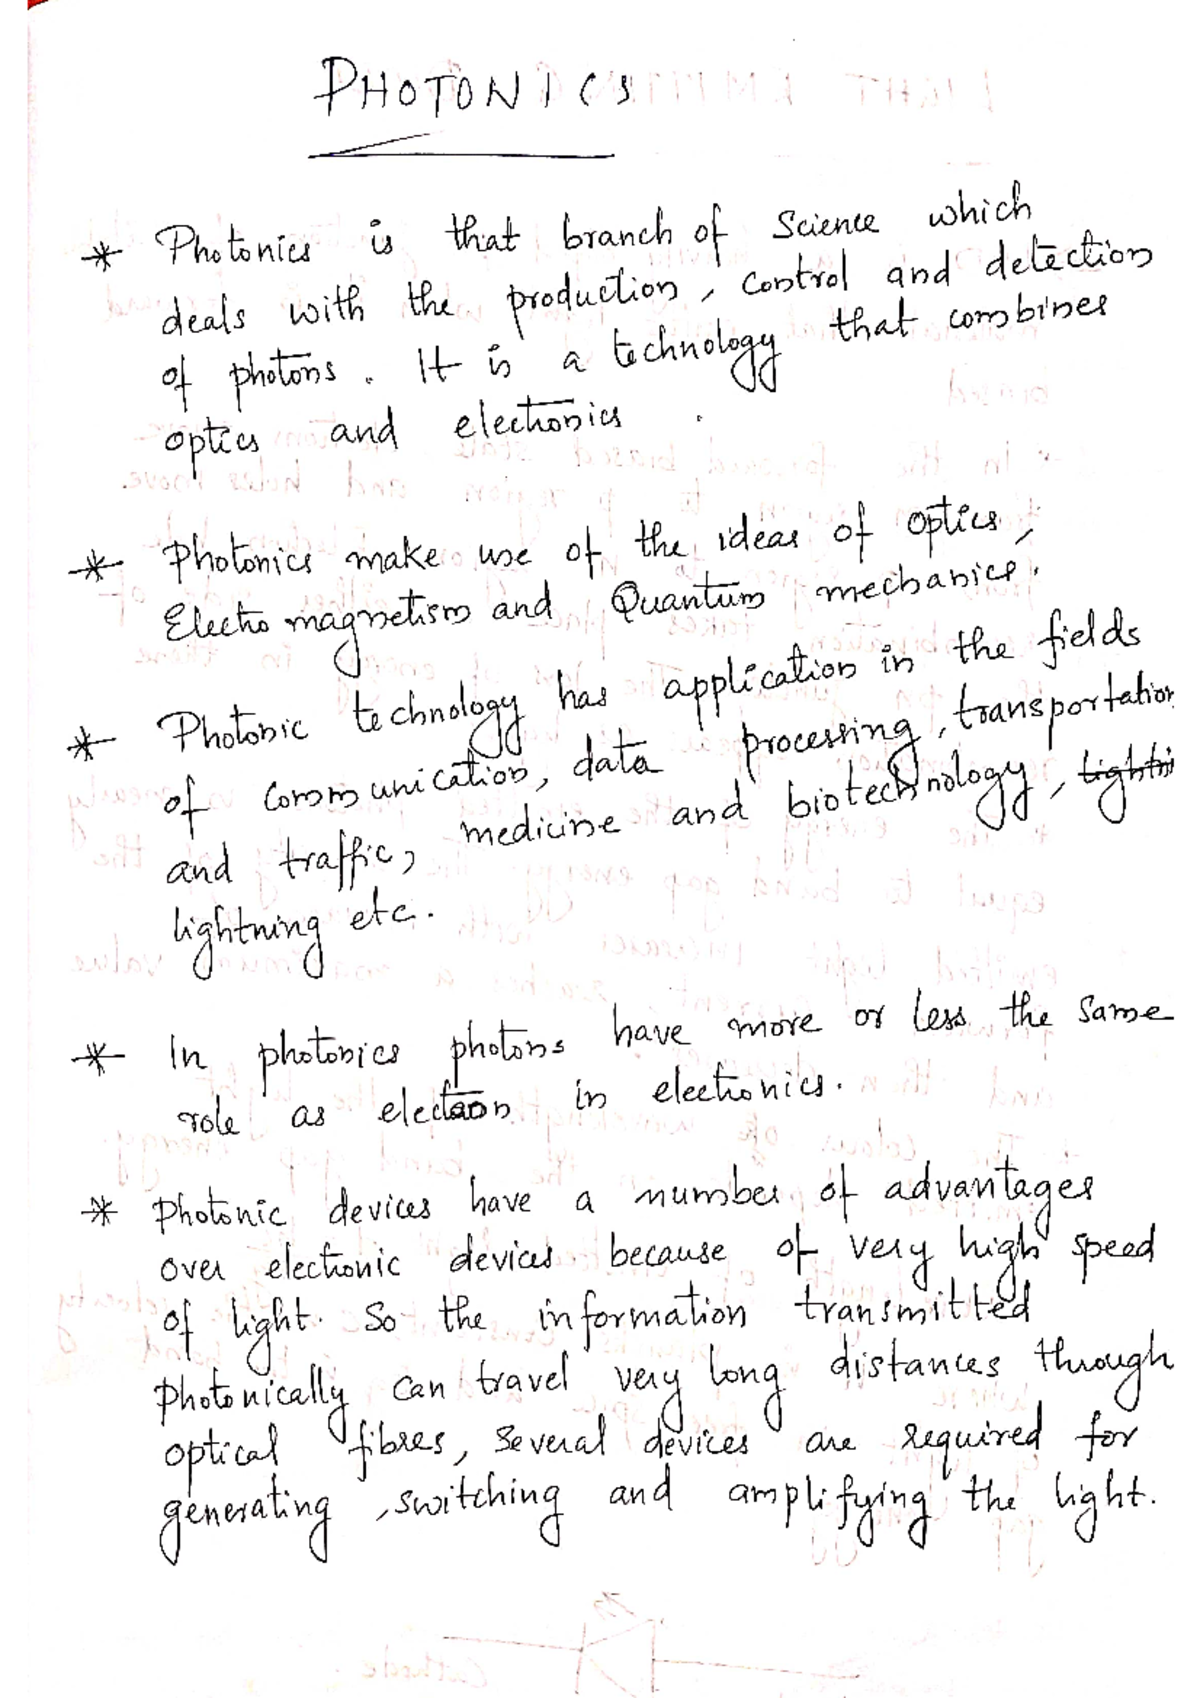 PHOTONICS
* Photonics is that branch of Science which
deals with the production, control and detection
of photons. It is a technology that combines
optics and electronics.
* Photonics make use of the ideas of optics,
Electro magnetism and Quantum mechanics.
* Photonic technology has application in the fields
of communication, data processing, transportation
and traffic, medicine and biotechnology, lightni
lightning etc.
* In photonics photons have more or less the same
role as electron in electronics.
* Photonic devices have a number of advantages
over electronic devices because of very high speed
of light. So the information transmitted
photonically can travel very long distances through
optical fibres, several devices are required for
generating, switching and amplifying the light.